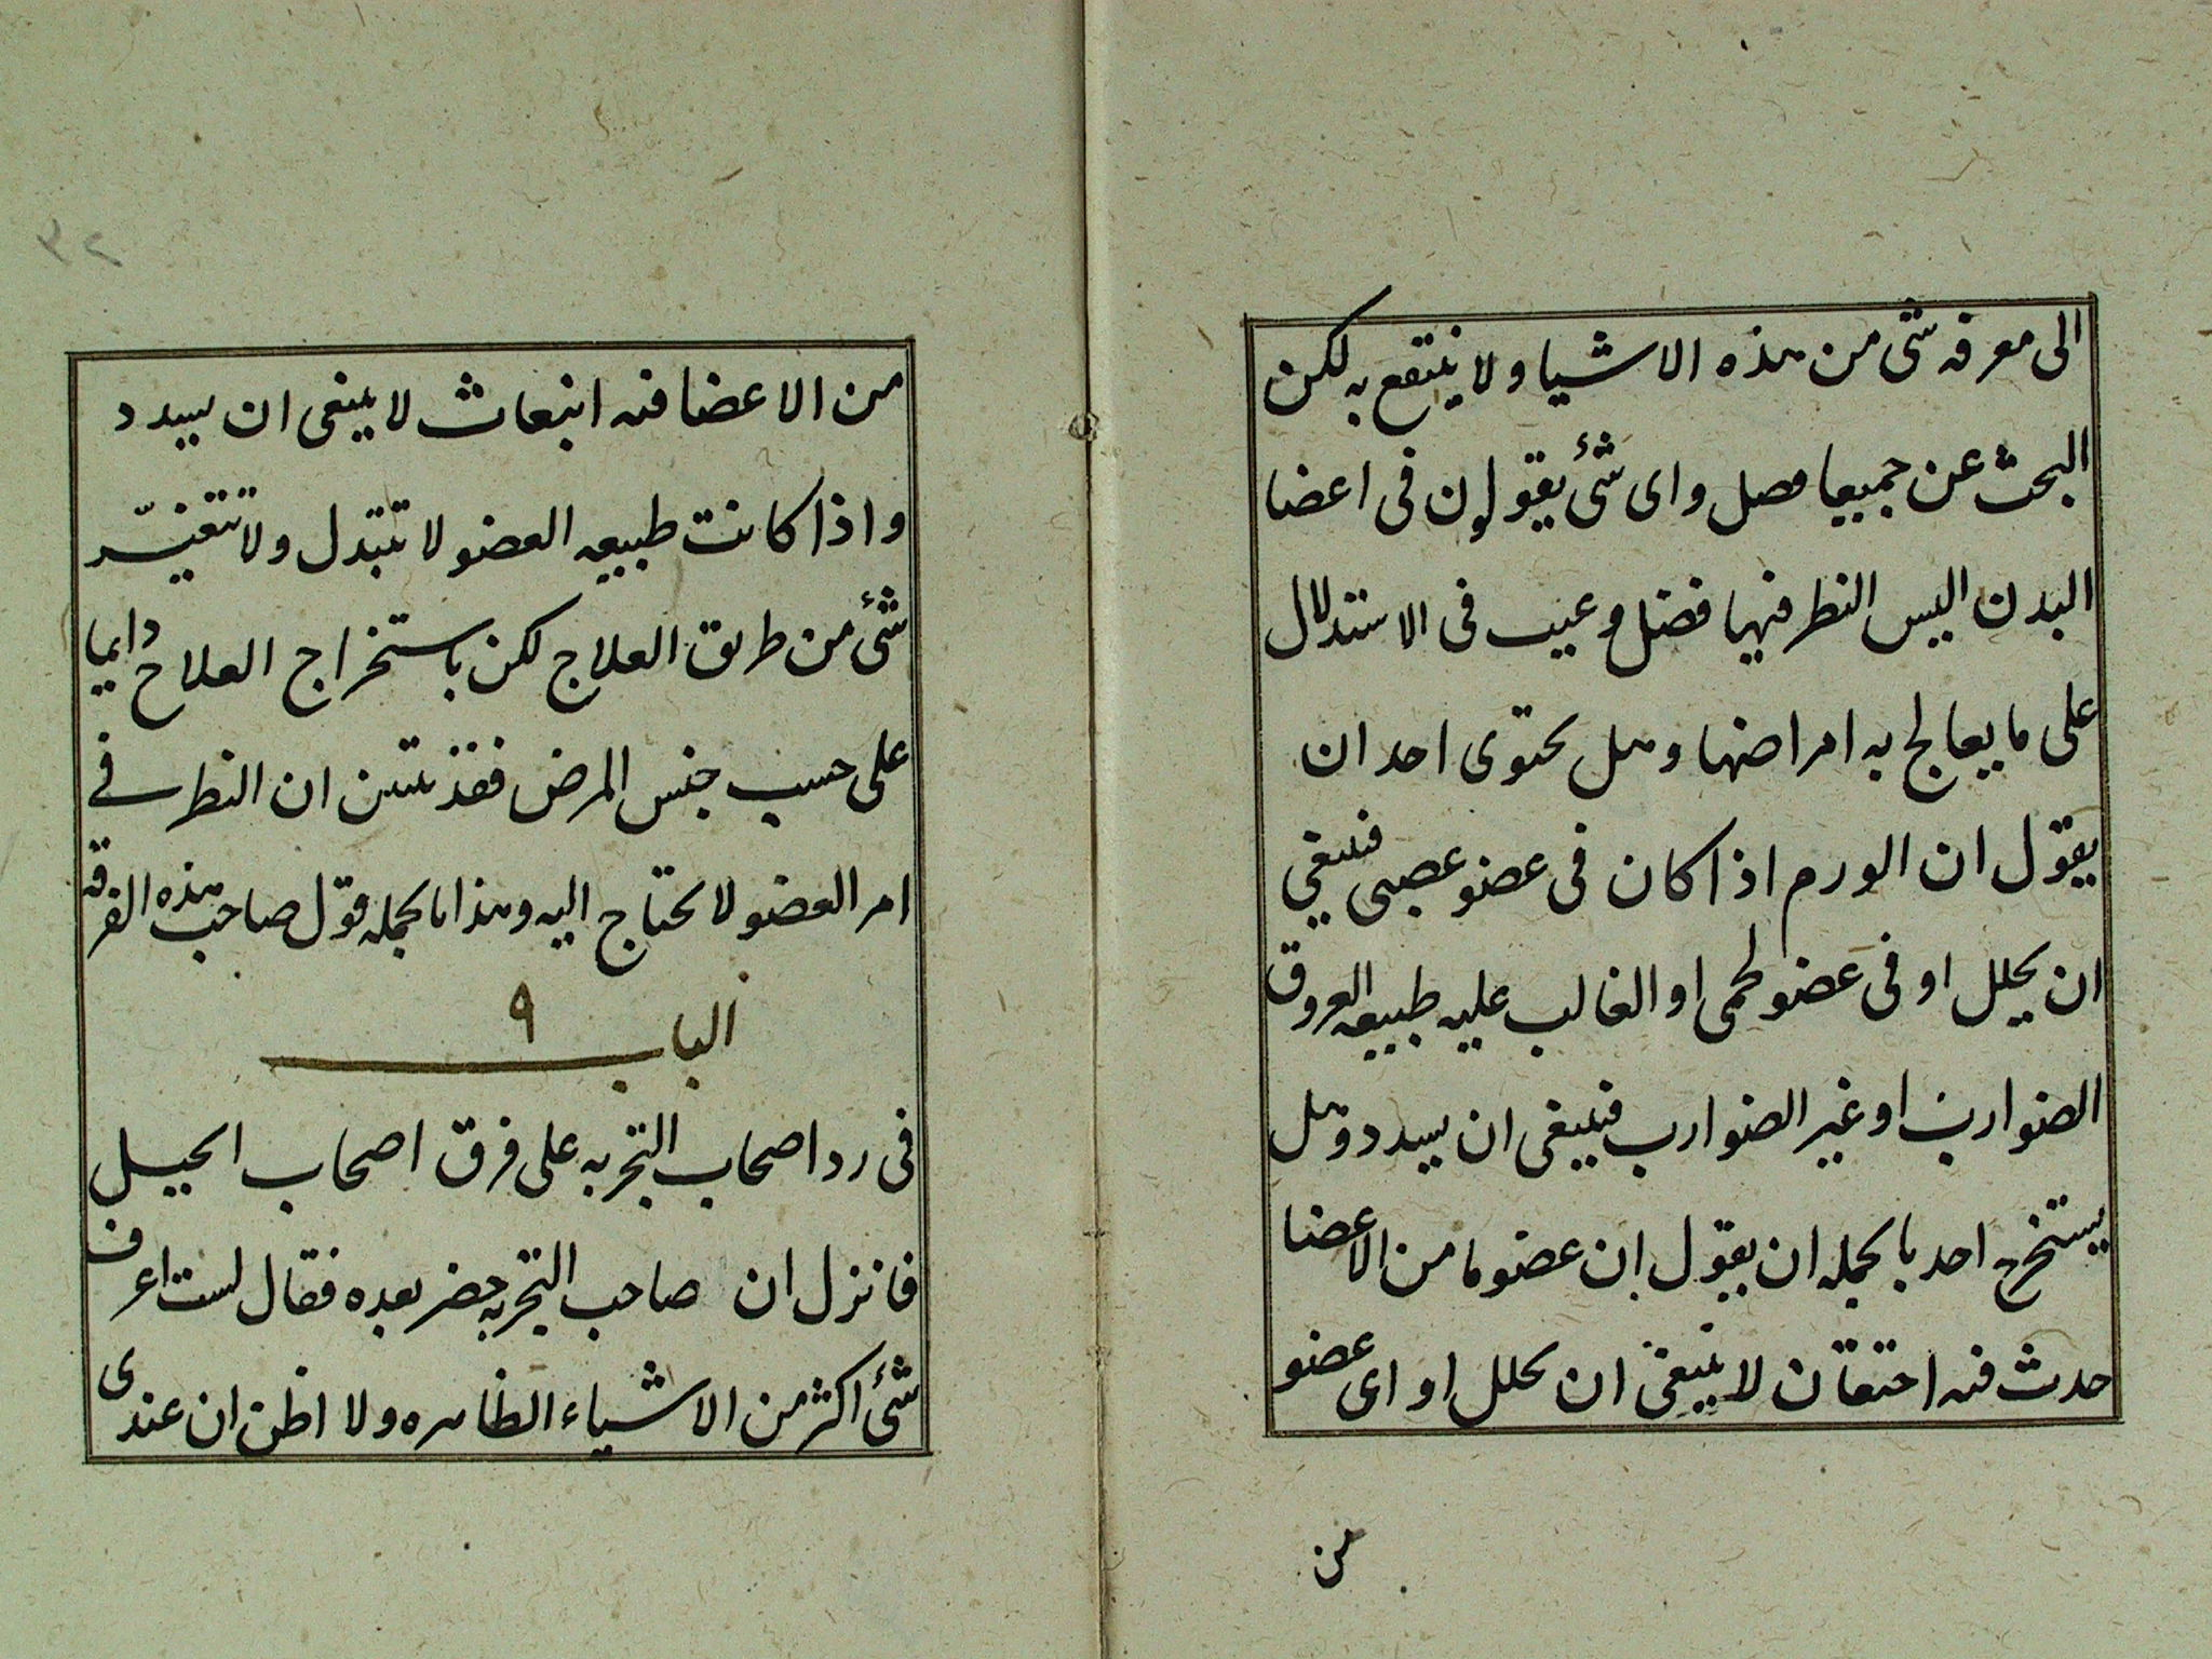 الى معرفه شى من هذه الاشيا ولا ينتفع به لكن
البحث عن جميعا فصل واى شئ يقولون فى اعضا
البدن اليس النظر فيها فضل وعيب فى الاستدلال
على ما يعالج به امراضها وهل يحتوى احد ان
يقول ان الورم اذا كان فى عضو عصبى فينبغي
ان يحلل او فى عضو لحمى او الغالب عليه طبيعه العروق
الضوارب او غير الضوارب فينبغى ان يسدد وهل
يستخرج احد بالجمله ان يقول ان عضوما من الاعضا
حدث فيه احتقان لا ينبغى ان يحلل او اى عضو
من
٣٢
من الاعضا فيه انبعاث لا ينبغى ان يسدد
واذا كانت طبيعه العضو لا تتبدل ولا تتغيّر
شئ من طريق العلاج لكن باستخراج العلاج دايما
على حسب جنس المرض فقد تبين ان النظر فے
امر العضو لا يحتاج اليه وهذا بالجمله قول صاحب هذه الفرقه
الباب ٩
فى رد اصحاب التجربه على فرق اصحاب الحيل
فانزل ان صاحب التجربه حضر بعده فقال لست اعرف
شئ اكثر من الاشياء الظاهره ولا اظن ان عندى